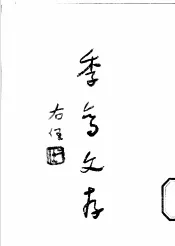 季高文存
右任